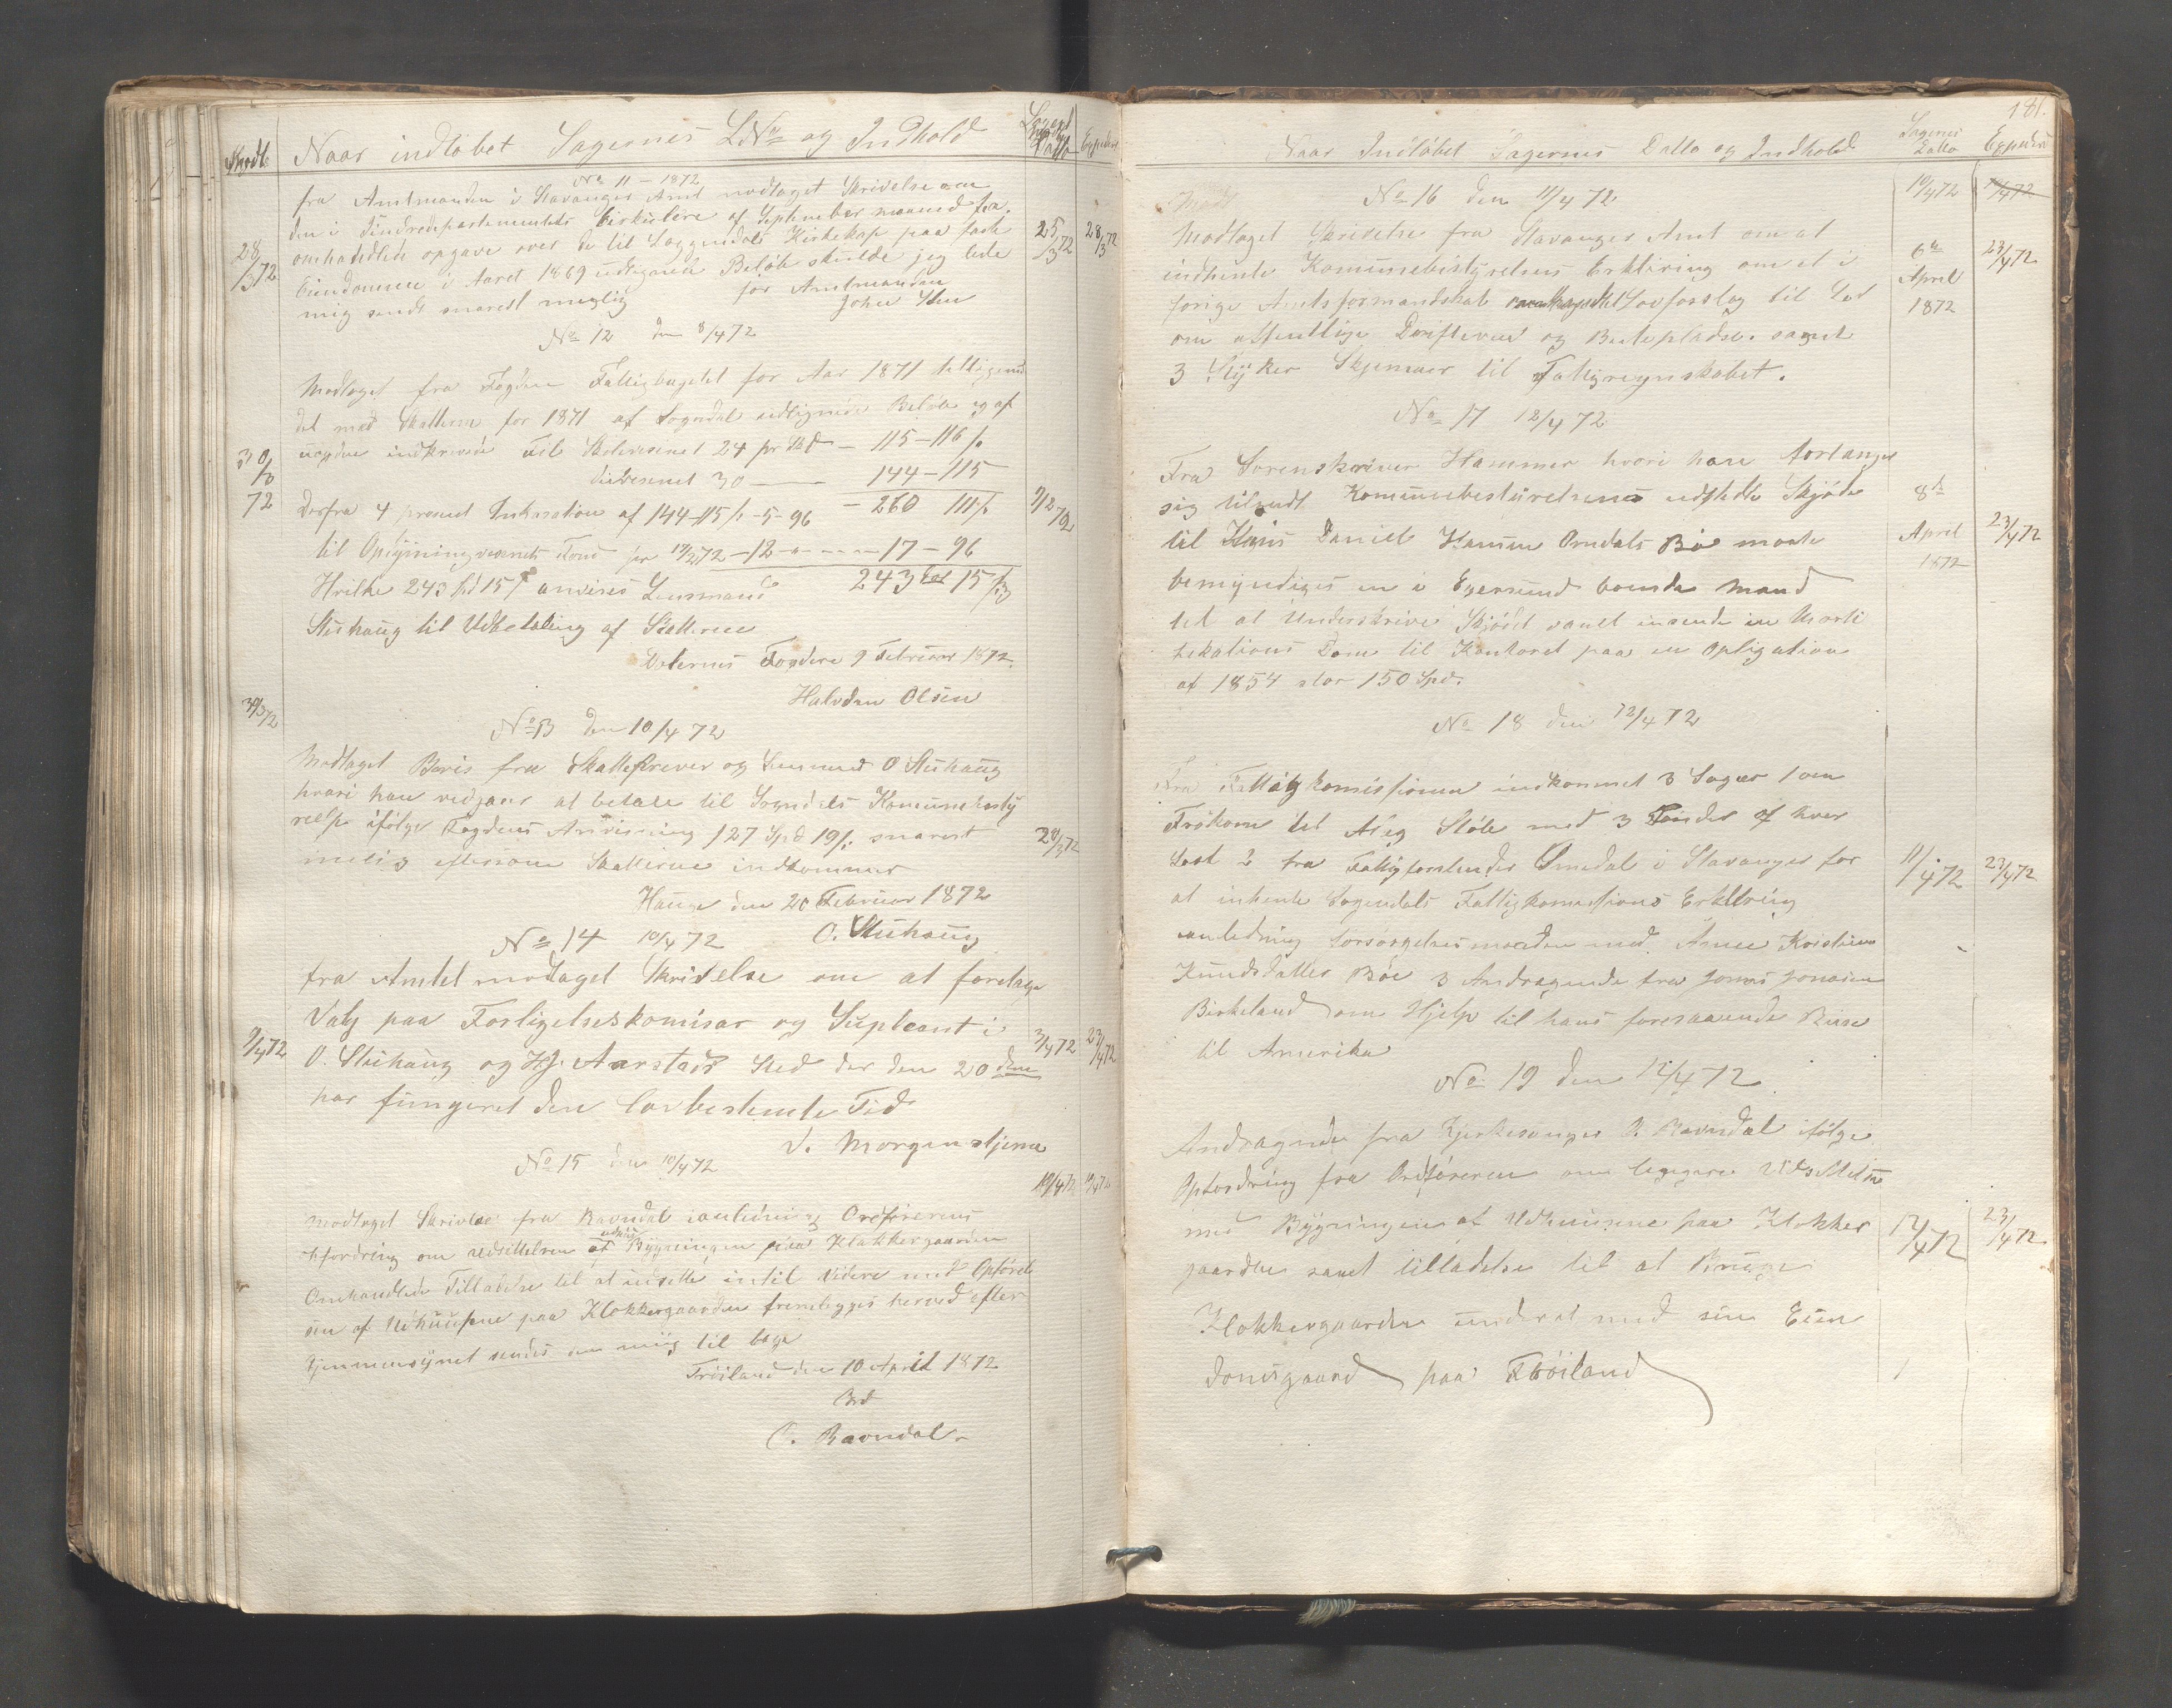 Naar indløbet Sagernes LNo og Indhold
Dato
No 11 - 1872
fra Amtmanden i Stavanger Amt modtaget Skrivelse om
den i Indredepartementets Cirkulere af September maaned fra
omhandlede opgave over de til Soggendals Kirkekap paa faste
Eiendomme i Aaret 1869 udlignede Beløb skulde jeg bede
mig sendt snarest muglig for Amtmanden
28/3 72
25/3 72
28/3 72
No 12 den 8/4 72
Modtaget fra Fogden Fattigbugetet for Aar 1871 tilligemed
det med Skatterne for 1871 af Sogndal udlignede Beløb og af
Fogden indkrevede Til Skolevesenet 24 pr Skd - 115-116 ſ.
30 - 144-115
- 260 111 ſ
Derfra 4 procent Inkasation af 144-115 ſ. -5-96
til Oplysningvesenets Fond pr 13/2 72 -12 - 17-96
243 15 ſ
Hvilke 243 spd 15 ſ anvises Lensmand
Stuhaug til Udbetaling af Skatterne
Dalernes Fogderi 9 Februar 1872.
Halvdan Olsen
30/3 72
9/2 72
No 13 den 10/4 72
Modtaget Bevis fra Skatteskriver og Lensmand O Stuhaug
hvori han vedgaar at betale til Sogndals Komunebesty
relse ifølge Fogdens Anvisning 127 Spd 19 ſ. snarest
mulig eftersom Skatterne indkommer
Hauge den 20 Februar 1872
O. Stuhaug
30/3 72
No 14 10/4 72
fra Amtet modtaget Skrivelse om at foretage
Valg paa Forligelseskomisar og Supleant i
O. Stuhaug og Aarstads Sted der den 20 den
har fungeret den lovbestemte Tid
V. Morgenstjerne
9/4 72
3/4 72
23/4 72
No 15 den 10/4 72
Modtaget Skrivelse fra Ravndal ianledning Ordførerens
Opfordring om Udsettelsen af Bygningen paa Klokkergaarden
Omhandlede Tilladelse til at udsette intil Videre med Opførel
sen af Udhuusene paa Klokkergaarden fremlegges herved efter
Gjennemsynet sendes den mig til bage
Frøiland den 10 April 1872
O. Ravndal.
10/4 72
181.
Naar Indløbet Sagernes Datto og Indhold
Sagernes Datto
Expedert
No 16 den 11/4 72
10/4 72
Modtaget Skrivelse fra Stavanger Amt om at
indhente Komunebestyrelsens Erklering om et i
forige Amtsformandskab Lovforslag til Lov
om offentlige Drifteveie og Beitepladse. samt
3 Styker Skjemaer til Fattigregnskabet.
6te April 1872
23/4 72
No 17 12/4 72
Fra Sorenskriver Hammer hvori han forlanger
sig tilsendt Komunebestyrelsens udstedte Skjøde
til Daniel Hansen Omdals Bø maate
bemyndiges en i Egersund boende Mand
til at Underskrive Skjødet samt insende en Morti
fikations Dom til Kontoret paa en Opligation
af 1854 stor 150 Spd.
8de April 1872
23/4 72
No 18 den 12/4 72
Fra Fattigkomissionen indkommet 3 Sager 1 om
Frøkorn til Støle med 3 Tønder af hver
Sort 2 fra Fattigforstander Omdal i Stavanger for
at inhente Sogendals Fattigkomissions Erklering
anledning forsørgelsesmaaden med Anne Kristine
Knudsdatter Bøe 3 Andragende fra Jonas Jonasen
Birkeland om Hjelp til hans forestaaende Reise
til Amerika
11/4 72
23/4 72
No 19 den 12/4 72
Andragende fra Kjerkesanger O. Ravndal ifølge
Opfordring fra Ordføreren om Udsettelse
med Bygningen af Udhuusene paa Klokker
gaarden samt tilladelse til at Bruge
Klokkergaarden underet med sin Eien
domsgaard paa Frøiland
12/4 72
23/4 72